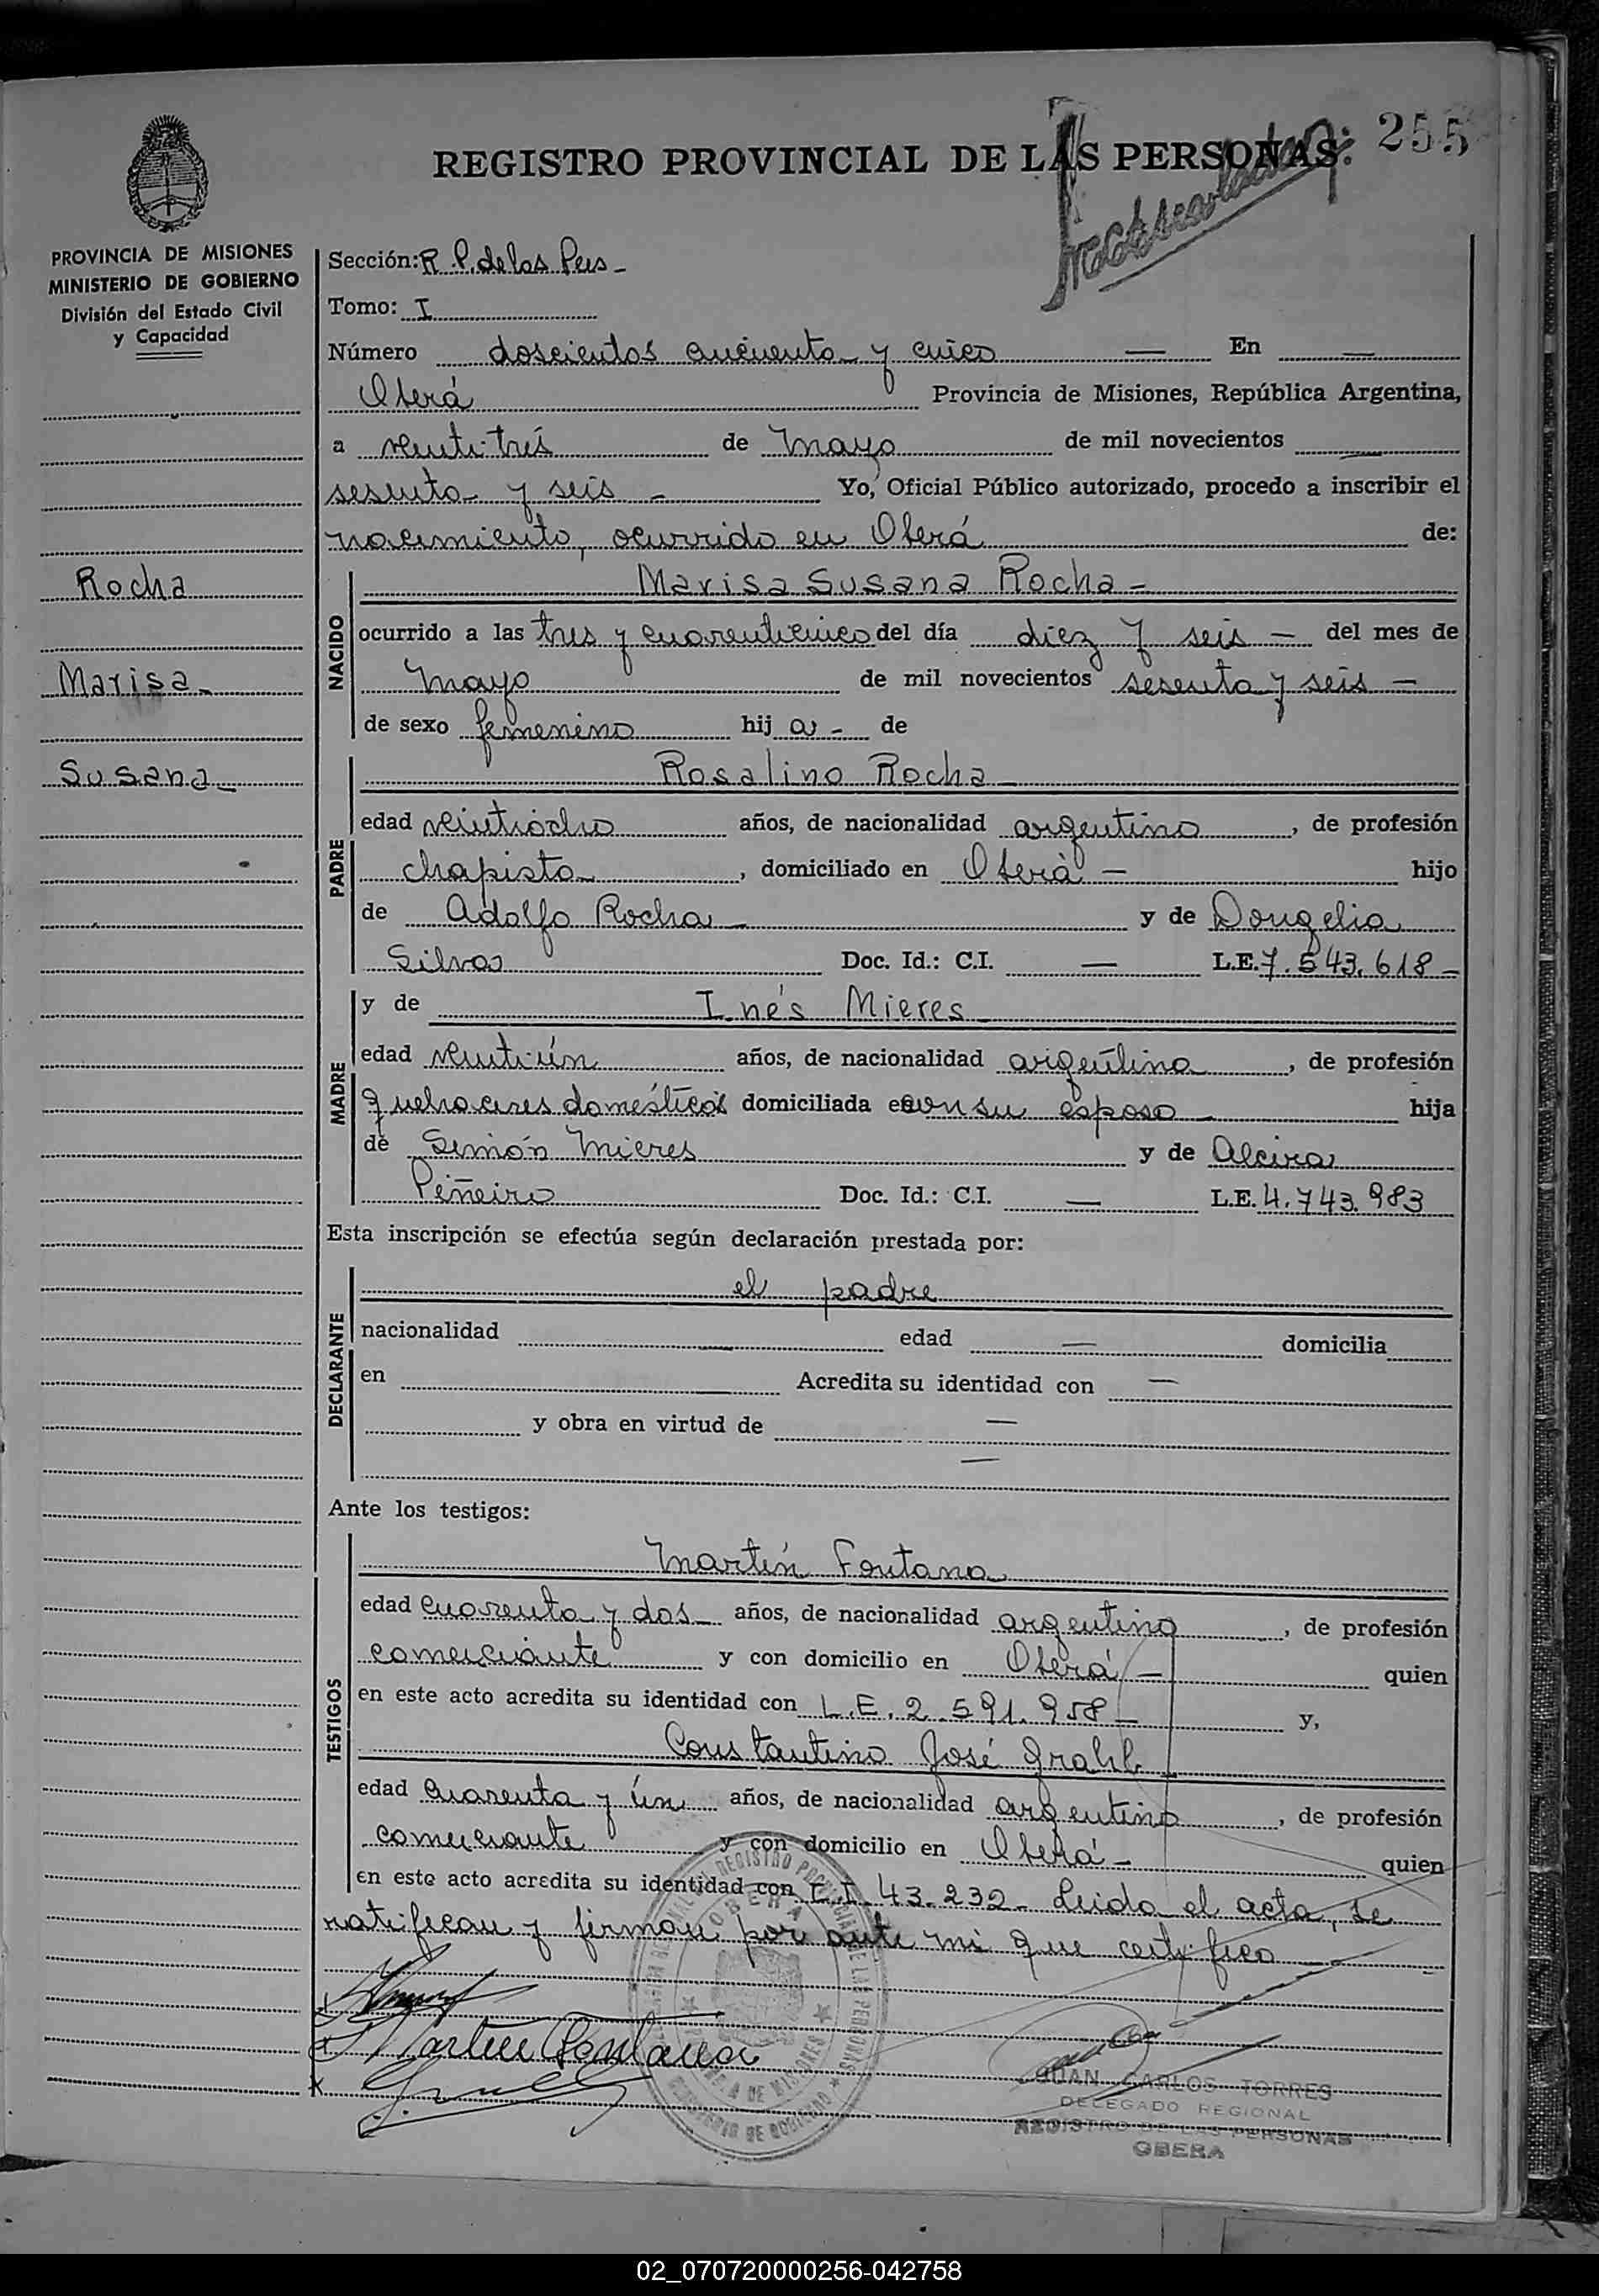 255
REGISTRO PROVINCIAL DE LAS PERSONAS:
PROVINCIA DE MISIONES
MINISTERIO DE GOBIERNO
División del Estado Civil
y Capacidad
Rocha
Marisa
Susana
Sección: R. P. de las Pers -
Tomo: I
Número doscientos cincuenta y cinco — En —
Oberá Provincia de Misiones, República Argentina,
a veintitrés de Mayo de mil novecientos —
sesenta y seis - Yo, Oficial Público autorizado, procedo a inscribir el
nacimiento, ocurrido en Oberá de:
NACIDO
Marisa Susana Rocha -
ocurrido a las tres y cuarenticinco del día diez y seis — del mes de
Mayo de mil novecientos sesenta y seis —
de sexo femenino hij a - de
PADRE
Rosalino Rocha
edad veintiocho años, de nacionalidad argentino, de profesión
chapista, domiciliado en Oberá — hijo
de Adolfo Rocha y de Dougelia
Silva Doc. Id.: C.I. — L.E. 7.543.618 -
MADRE
y de Inés Mieres
edad veintiún años, de nacionalidad argentina, de profesión
quehaceres domésticos domiciliada con su esposo hija
de Simón Mieres y de Alcira
Piñeiro Doc. Id.: C.I. — L.E. 4.743.983
Esta inscripción se efectúa según declaración prestada por:
DECLARANTE
el padre
nacionalidad — edad — domicilia
en — Acredita su identidad con —
y obra en virtud de —
—
Ante los testigos:
TESTIGOS
Martín Fontana
edad cuarenta y dos años, de nacionalidad argentino, de profesión
comerciante y con domicilio en Oberá — quien
en este acto acredita su identidad con L.E. 2.591.958 - y,
Constantino José Grahl
edad cuarenta y ún años, de nacionalidad argentino, de profesión
comerciante y con domicilio en Oberá - quien
en este acto acredita su identidad con C.I. 43.232 - Leida el acta, se
ratifican y firman por ante mi que certifico
Martin Fontana
JUAN CARLOS TORRES
DELEGADO REGIONAL
REGISTRO DE LAS PERSONAS
OBERA
02_070720000256-042758